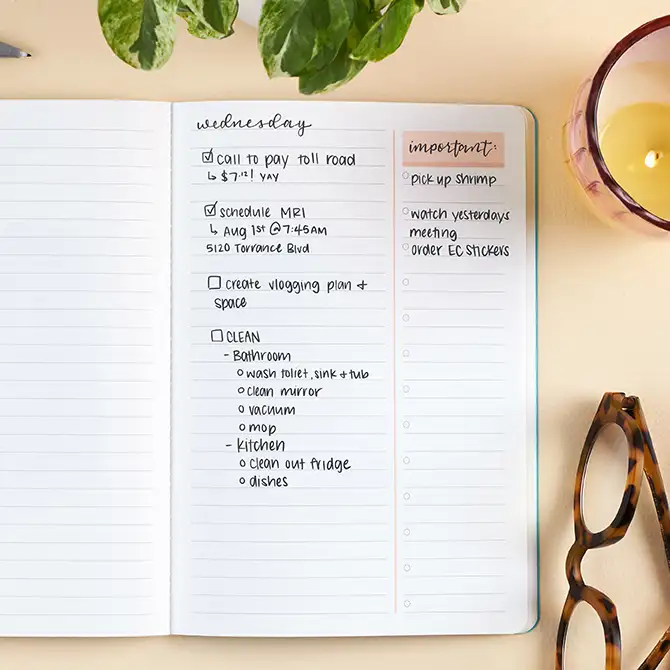 wednesday
call to pay toll road
↳ $7.12! YAY
schedule MRI
↳ Aug 1st @ 7:45AM
5120 Torrance Blvd
create vlogging plan +
space
CLEAN
- Bathroom
o wash toilet, sink + tub
o clean mirror
o vacuum
o mop
- Kitchen
o clean out fridge
o dishes
important:
pick up shrimp
watch yesterdays
meeting
order EC Stickers